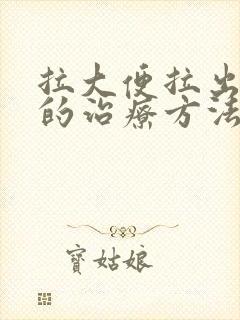 拉大便拉出
的治療方法
寶姑娘